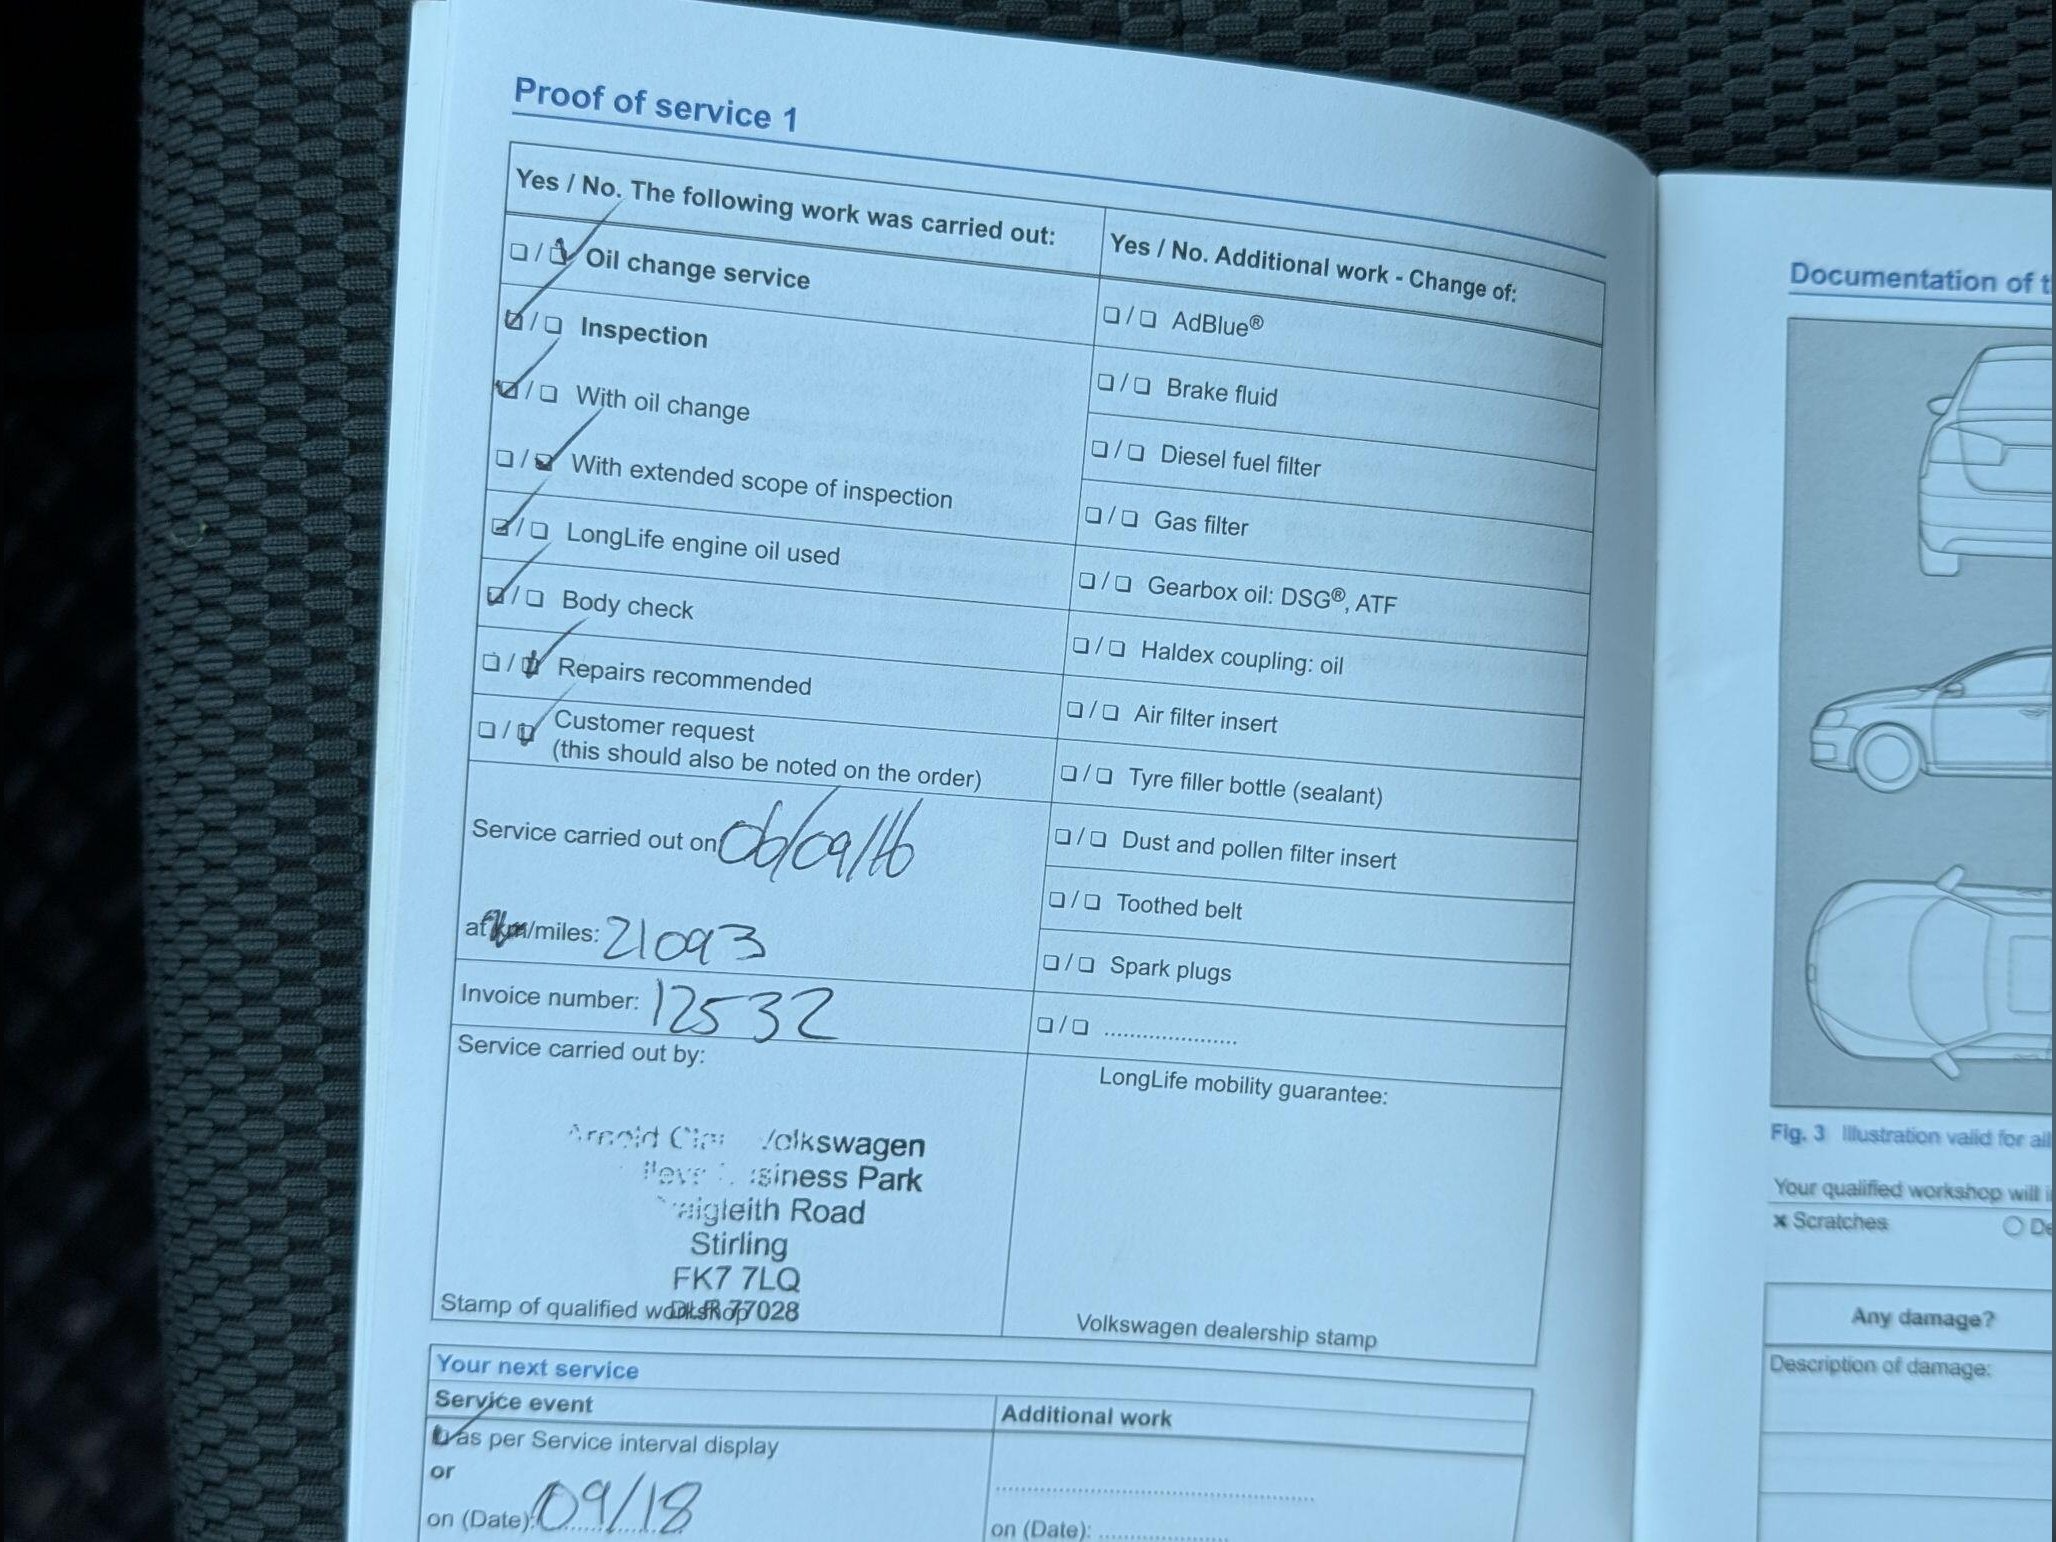 Proof of service 1
Yes / No. The following work was carried out:
Oil change service
Inspection
With oil change
With extended scope of inspection
LongLife engine oil used
Body check
Repairs recommended
Customer request
(this should also be noted on the order)
Service carried out on 06/09/16
at km/miles: 21093
Invoice number: 12532
Service carried out by:
Arnold Volkswagen
Business Park
Craigleith Road
Stirling
FK7 7LQ
DLR 77028
Stamp of qualified workshop
Yes / No. Additional work - Change of:
AdBlue®
Brake fluid
Diesel fuel filter
Gas filter
Gearbox oil: DSG®, ATF
Haldex coupling: oil
Air filter insert
Tyre filler bottle (sealant)
Dust and pollen filter insert
Toothed belt
Spark plugs
LongLife mobility guarantee:
Volkswagen dealership stamp
Your next service
Service event
as per Service interval display
or
on (Date): 09/18
Additional work
on (Date):
Documentation of
Fig. 3 Illustration valid for
Your qualified workshop will
Scratches
Any damage?
Description of damage: